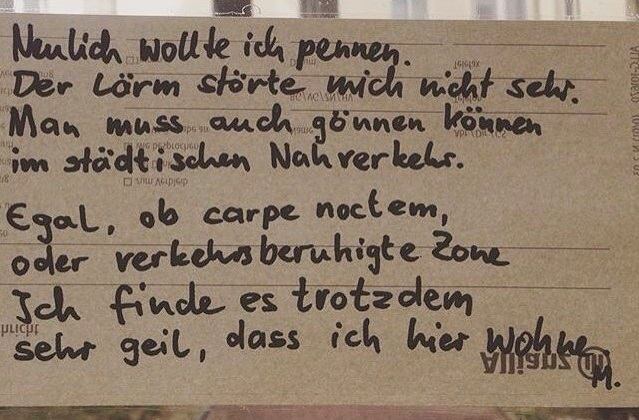 Neulich wollte ich pennen.
Der Lärm störte mich nicht sehr.
Man muss auch gönnen können
im städtischen Nahverkehr.
Egal, ob carpe noctem,
oder verkehrsberuhigte Zone
Ich finde es trotzdem
sehr geil, dass ich hier wohne
M.
Allianz